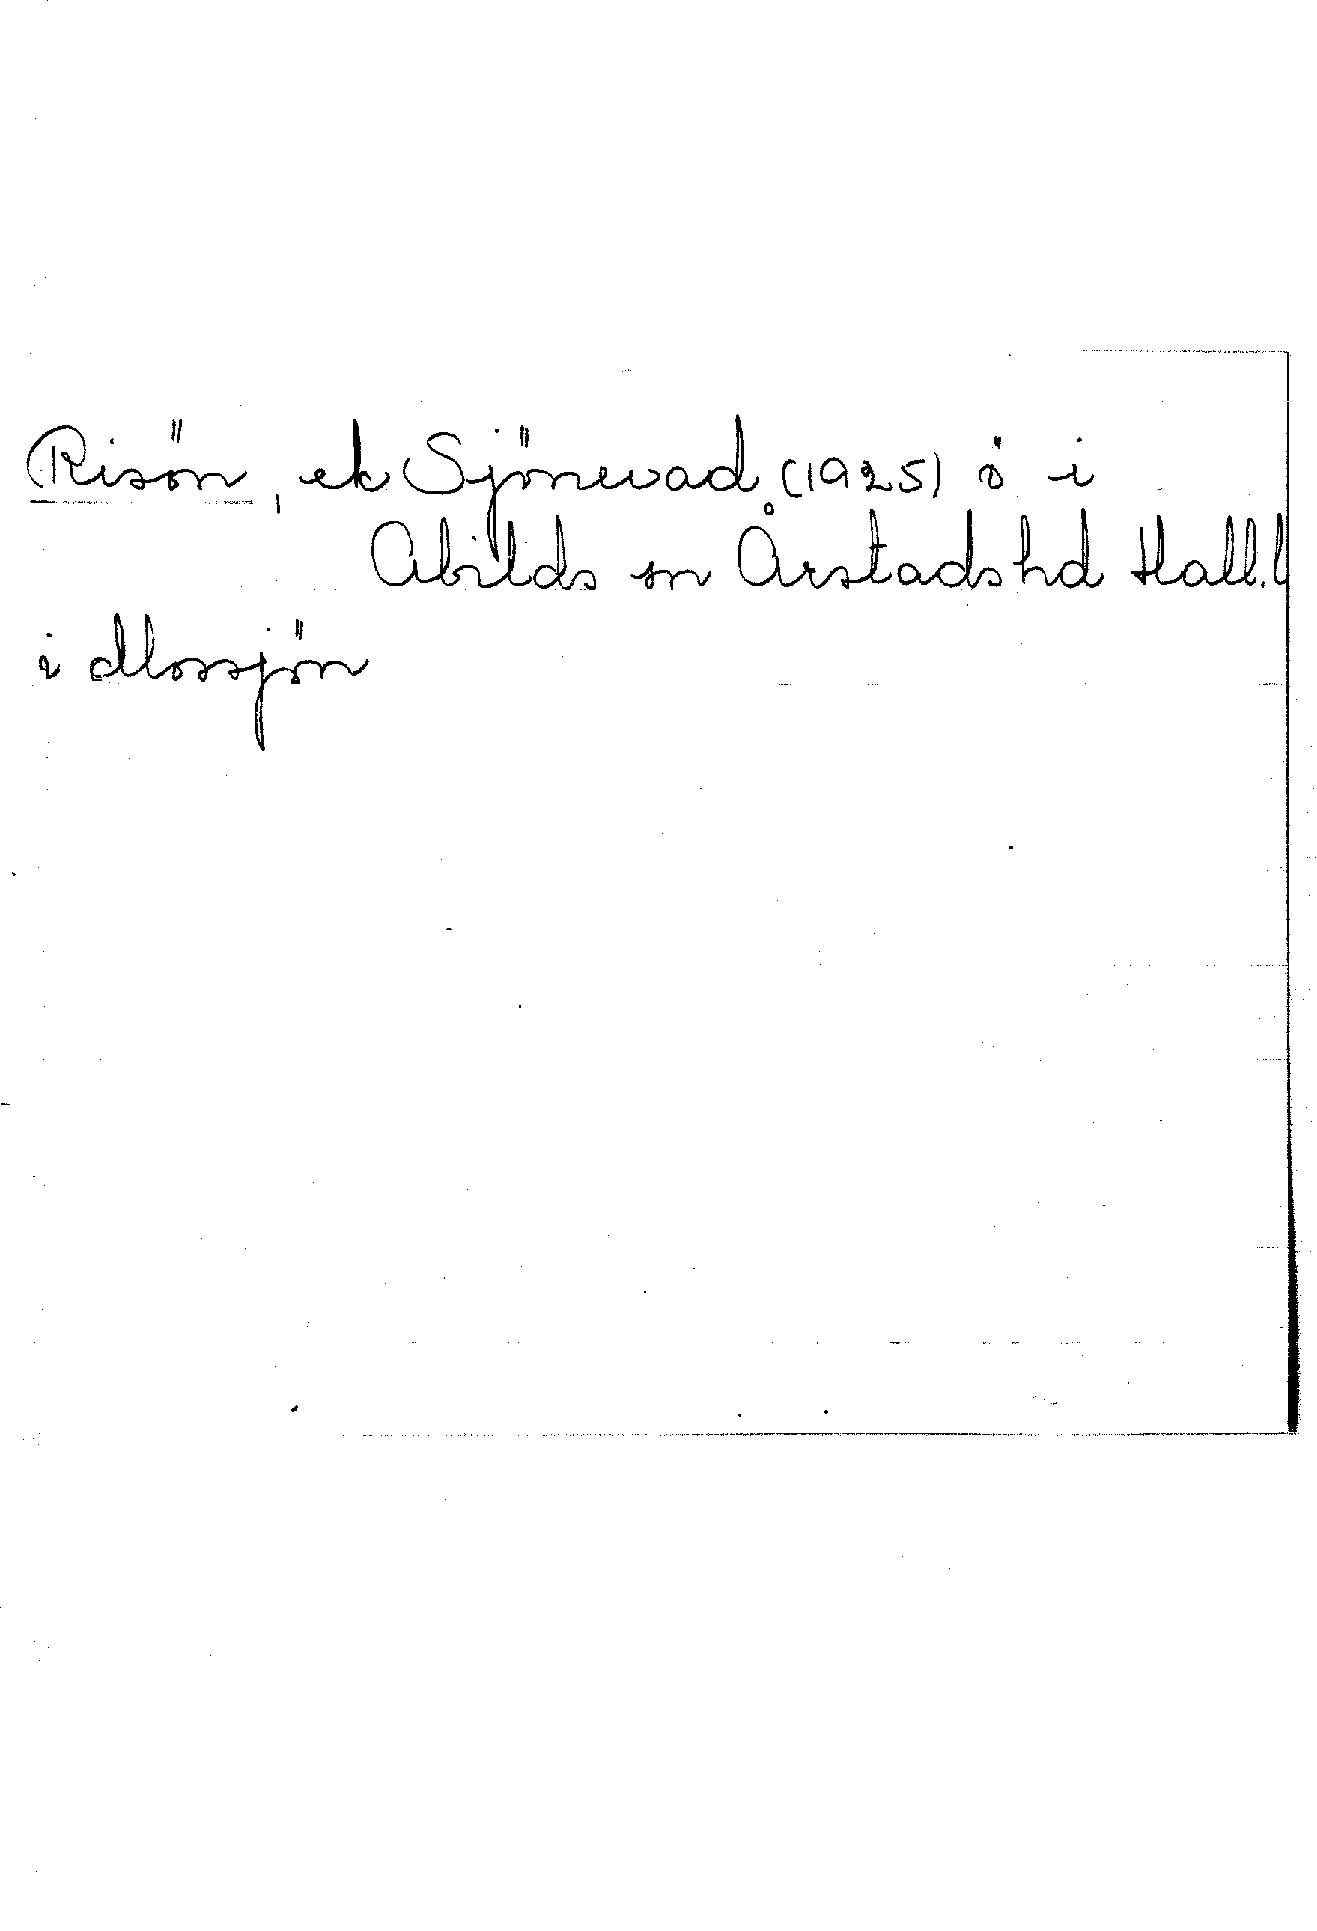 Risön, ek Sjönevad (1925) ö i
Abilds sn Årstads hd Hall.l
i Mossjön